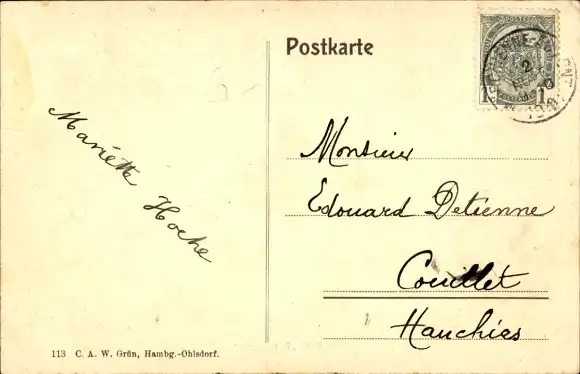 Postkarte
1 1
2
Monsieur
Edouard Detienne
Couillet
Hauchies
Mariette Hoche
113 C. A. W. Grün, Hambg.-Ohlsdorf.